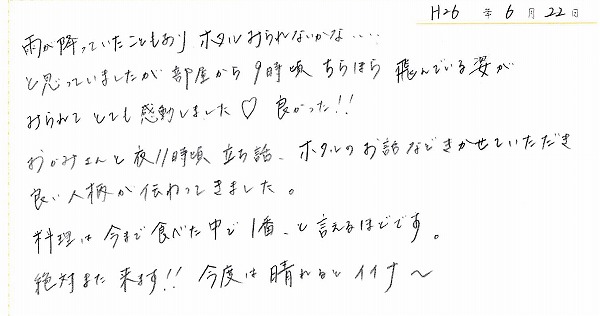 H26 年 6 月 22 日
雨が降っていたこともあり ホタルみられないかな....
と思っていましたが 部屋から 9時頃 ちらほら 飛んでいる姿が
みられて とても 感動しました♡ 良かった!!
おかみさんと夜11時頃 立ち話、ホタルのお話などきかせていただき
良い人柄が伝わってきました。
料理は今まで食べた中で1番、と言えるほどです。
絶対また来ます!! 今度は晴れるとイイナ〜